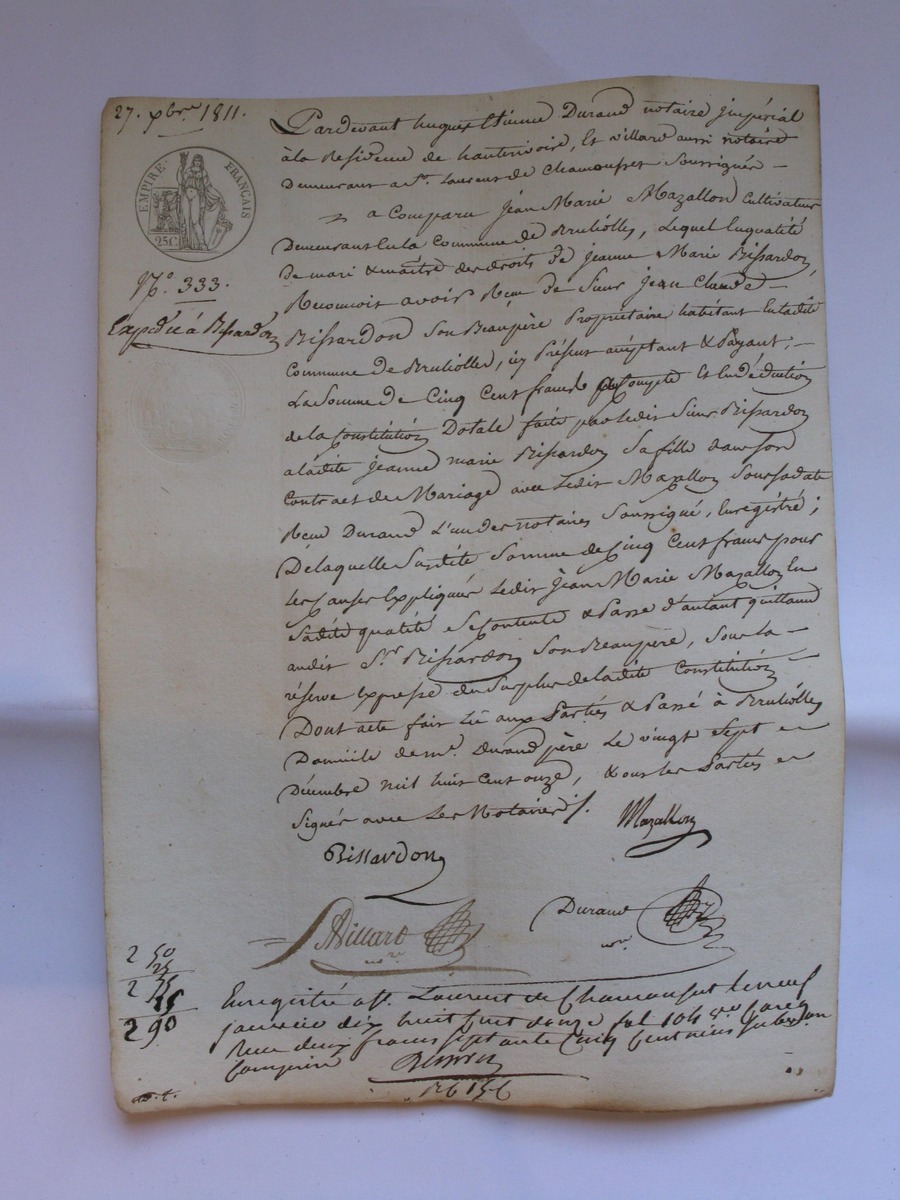 27. xbre 1811.
EMPIRE FRANÇAIS
25C.
N.° 333.
Expédié à Bissardon
Pardevant hugues Etienne Durand notaire jmpérial
à la Residence de hauterivoire, Et villard aussi notaire
Demeurant a St. Laurent de Chamousset Soussignés —
a Comparu Jean Marie Mazallon Cultivateur
Demeurant En la Commune de Brulliolles, Lequel En qualité
De mari & maître des droits de jeanne Marie Bissardon,
Reconnoit avoir Reçu de Sieur jean Claude —
Bissardon Son Beaupère Propriétaire habitant En ladite
Commune de Brulliolles, icy Présent acceptant & Payant, —
La Somme de Cinq Cent francs à Compte Et En déduction
de la Constitution Dotale faite par ledit Sieur Bissardon
a ladite jeanne marie Bissardon Sa fille dans Son
Contract de Mariage avec Ledit Mazallon Sous Sa date
Reçu Durand L'un des notaires Soussigné, Enregistré ;
De laquelle Susdite Somme de Cinq Cent francs pour
Les Causes Expliquées Ledit Jean Marie Mazallon En
Sadite qualité Se Contente & Passe d'autant quittance
audit Sr. Bissardon Son Beaupère, Sous la —
réserve Expresse du Surplus de ladite Constitution —
Dont acte fait Lû aux Parties & Passé à Brulliolles
Domicile de me. Durand père Le vingt Sept
Décembre mil huit Cent onze, & ont les Parties
Signés avec Les Notaires ./.
Mazallon
Bissardon
Villard
nore
Durand
nore
2 50
25
2 75
15
2 90
Enregistré a St. Laurent de Chamousset le neuf
janvier dix huit Cent douze fol. 104
Reçu deux francs Septante Cinq Centimes Subvention
Comprise